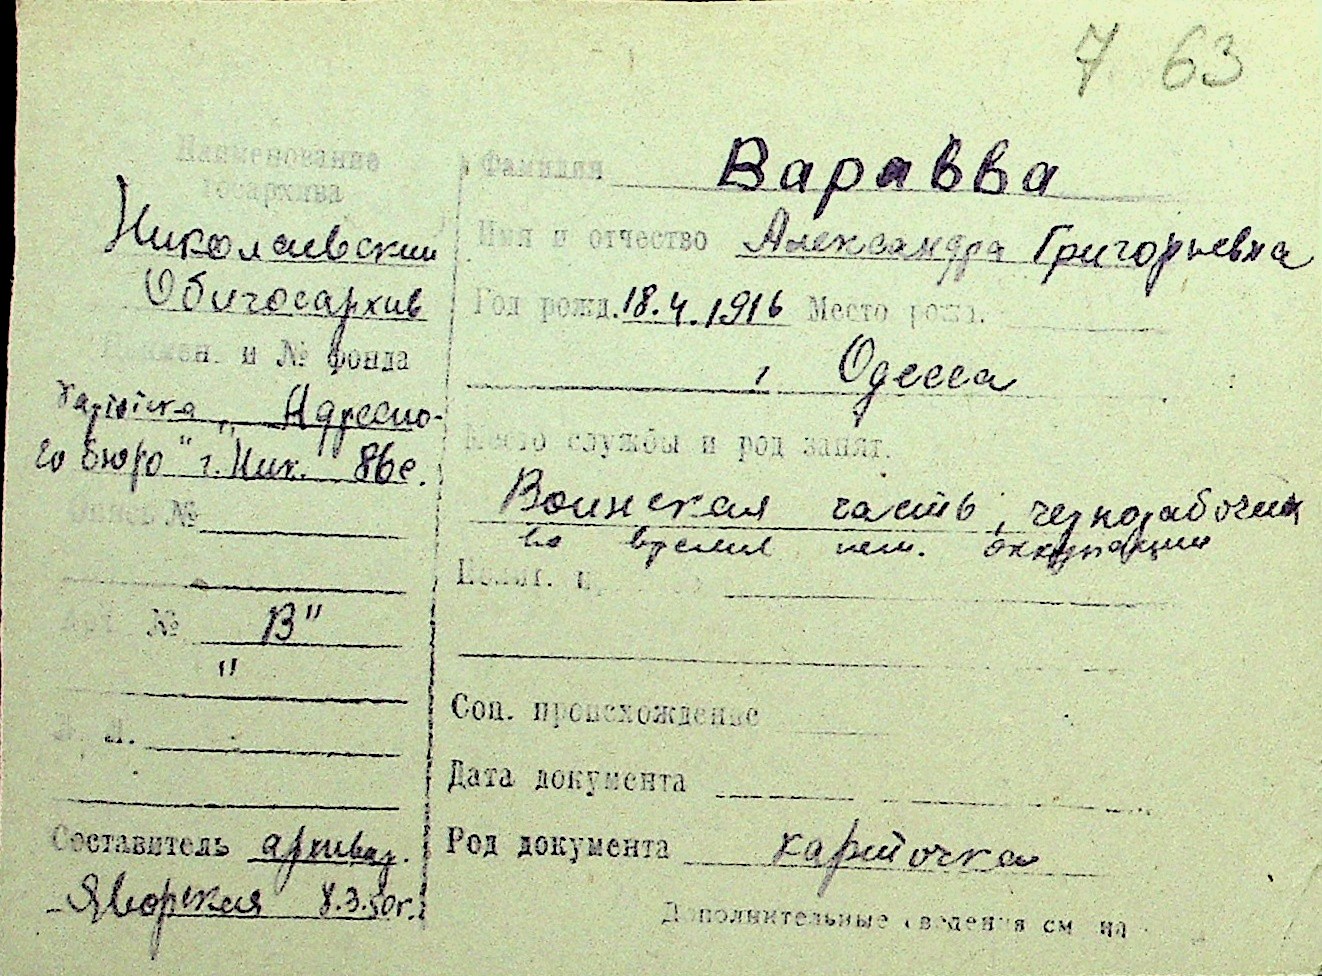 7 63
Наименование
госархива
Николаевский
Облгосархив
Наимен. и № фонда
картотека „Адресно-
го бюро" г. Ник. 86с.
Опись №
Арх. № „В"
"
Л. Л.
Составитель архивар.
Яворская 8.3.50г.
Фамилия Варавва
Имя и отчество Александра Григорьевна
Год рожд. 18.4.1916 Место рожд.
, Одесса
Место службы и род занят.
Воинская часть, чернорабочий
во время нем. оккупации
Полит.
Соц. происхождение
Дата документа
Род документа карточка
Дополнительные сведения см на